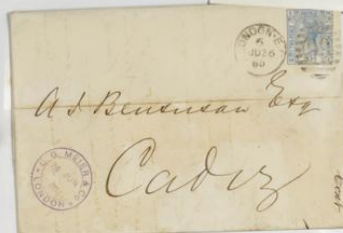 LONDON·E.C
6
JU 26
80
A S Bensusan Esq
Cadiz
C. G. MEIER & Co
LONDON